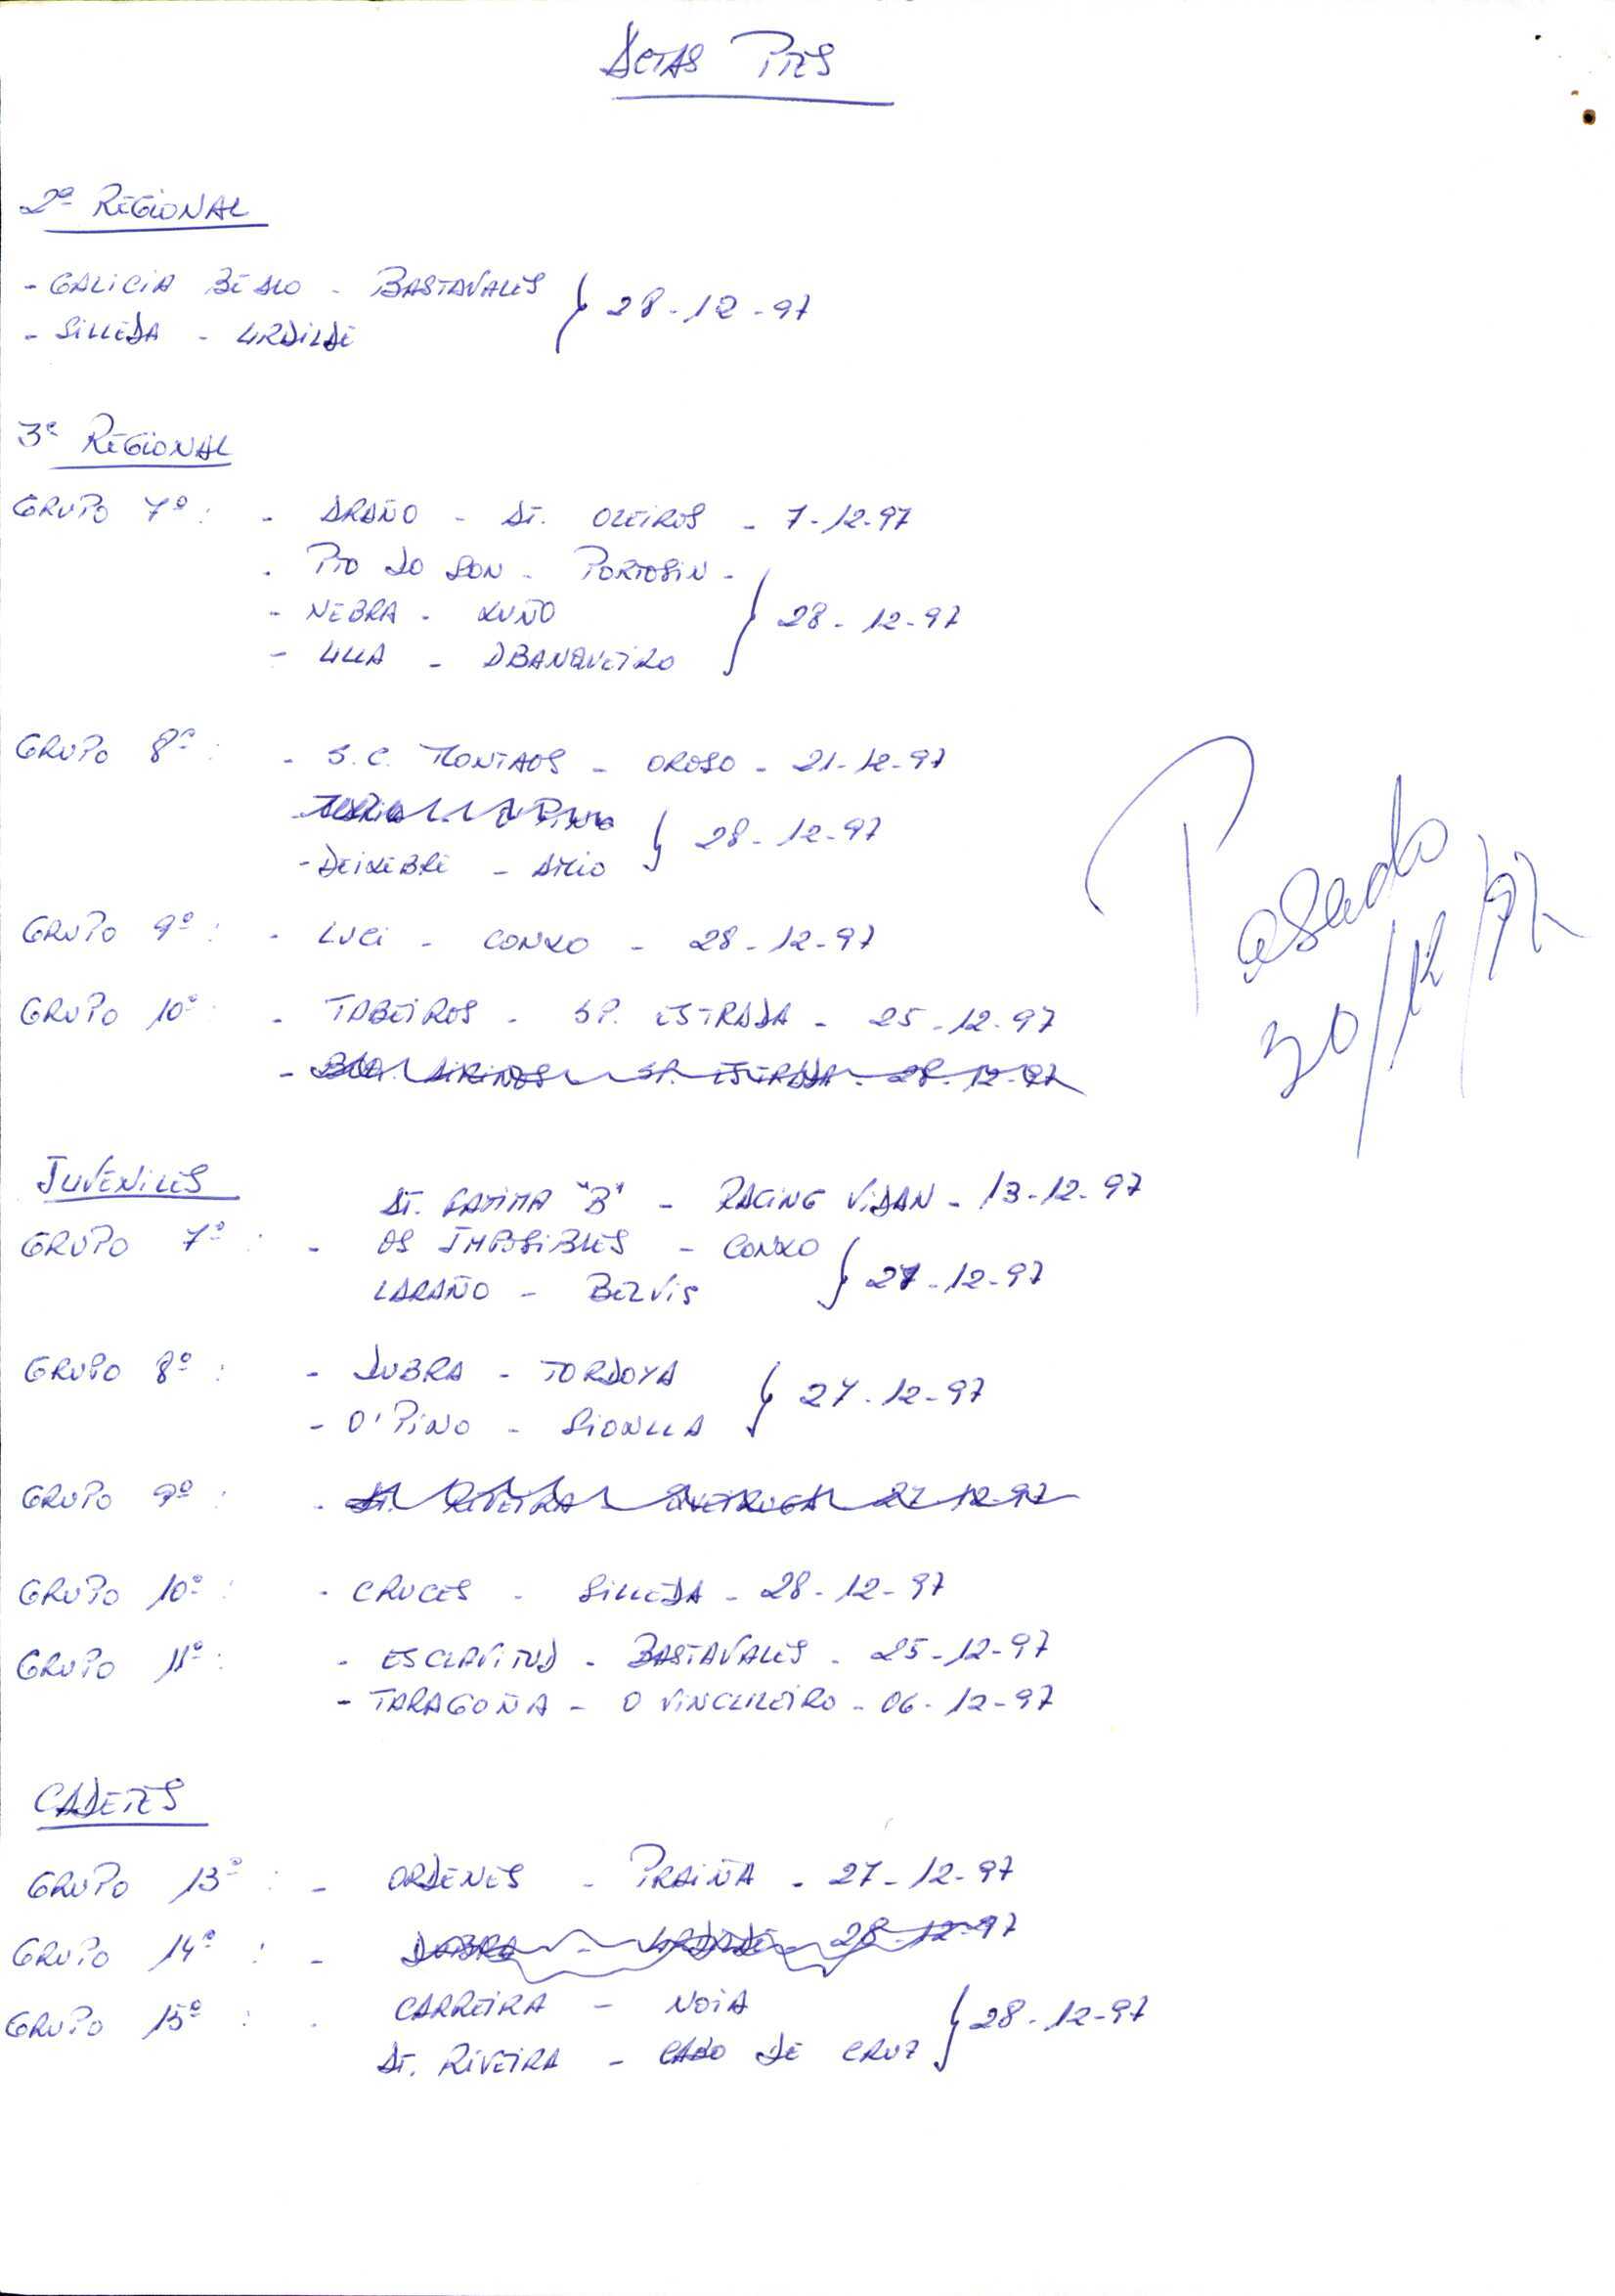 ACTAS PTES
2ª REGIONAL
- GALICIA BEALO - BASTAVALES
- SILLEDA - URDILDE } 28-12-97
3ª REGIONAL
GRUPO 7º: - ARAÑO - AT. OLEIROS - 7-12-97
- PTO DO SON - PORTOSIN -
- NEBRA - XUÑO } 28-12-97
- ULLA - ABANQUEIRO
GRUPO 8º: - S.C. MONTAOS - OROSO - 21-12-97
O PINO
- DEIXEBRE - AMIO } 28-12-97
GRUPO 9º: - LUCI - CONXO - 28-12-97
GRUPO 10º - TABEIROS - SP. ESTRADA - 25-12-97
- SP. ESTRADA - 28-12-97
Pasado
30/12/97
JUVENILES
AT. FATIMA "B" - RACING VIDAN - 13-12-97
GRUPO 7º: - OS IMPOSIBLES - CONXO
LARAÑO - BELVIS } 27-12-97
GRUPO 8º: - DUBRA - TORDOYA
- O'PINO - SIONLLA } 27-12-97
GRUPO 9º: - AT. RIVEIRA - QUEIRUGA - 27-12-97
GRUPO 10º: - CRUCES - SILLEDA - 28-12-97
GRUPO 11º: - ESCLAVITUD - BASTAVALES - 25-12-97
- TARAGOÑA - O VINCULEIRO - 06-12-97
CADETES
GRUPO 13º: - ORDENES - PRAIÑA - 27-12-97
GRUPO 14º: - DUBRA - URDILDE - 28-12-97
GRUPO 15º: - CARREIRA - NOIA
AT. RIVEIRA - CABO DE CRUZ } 28-12-97